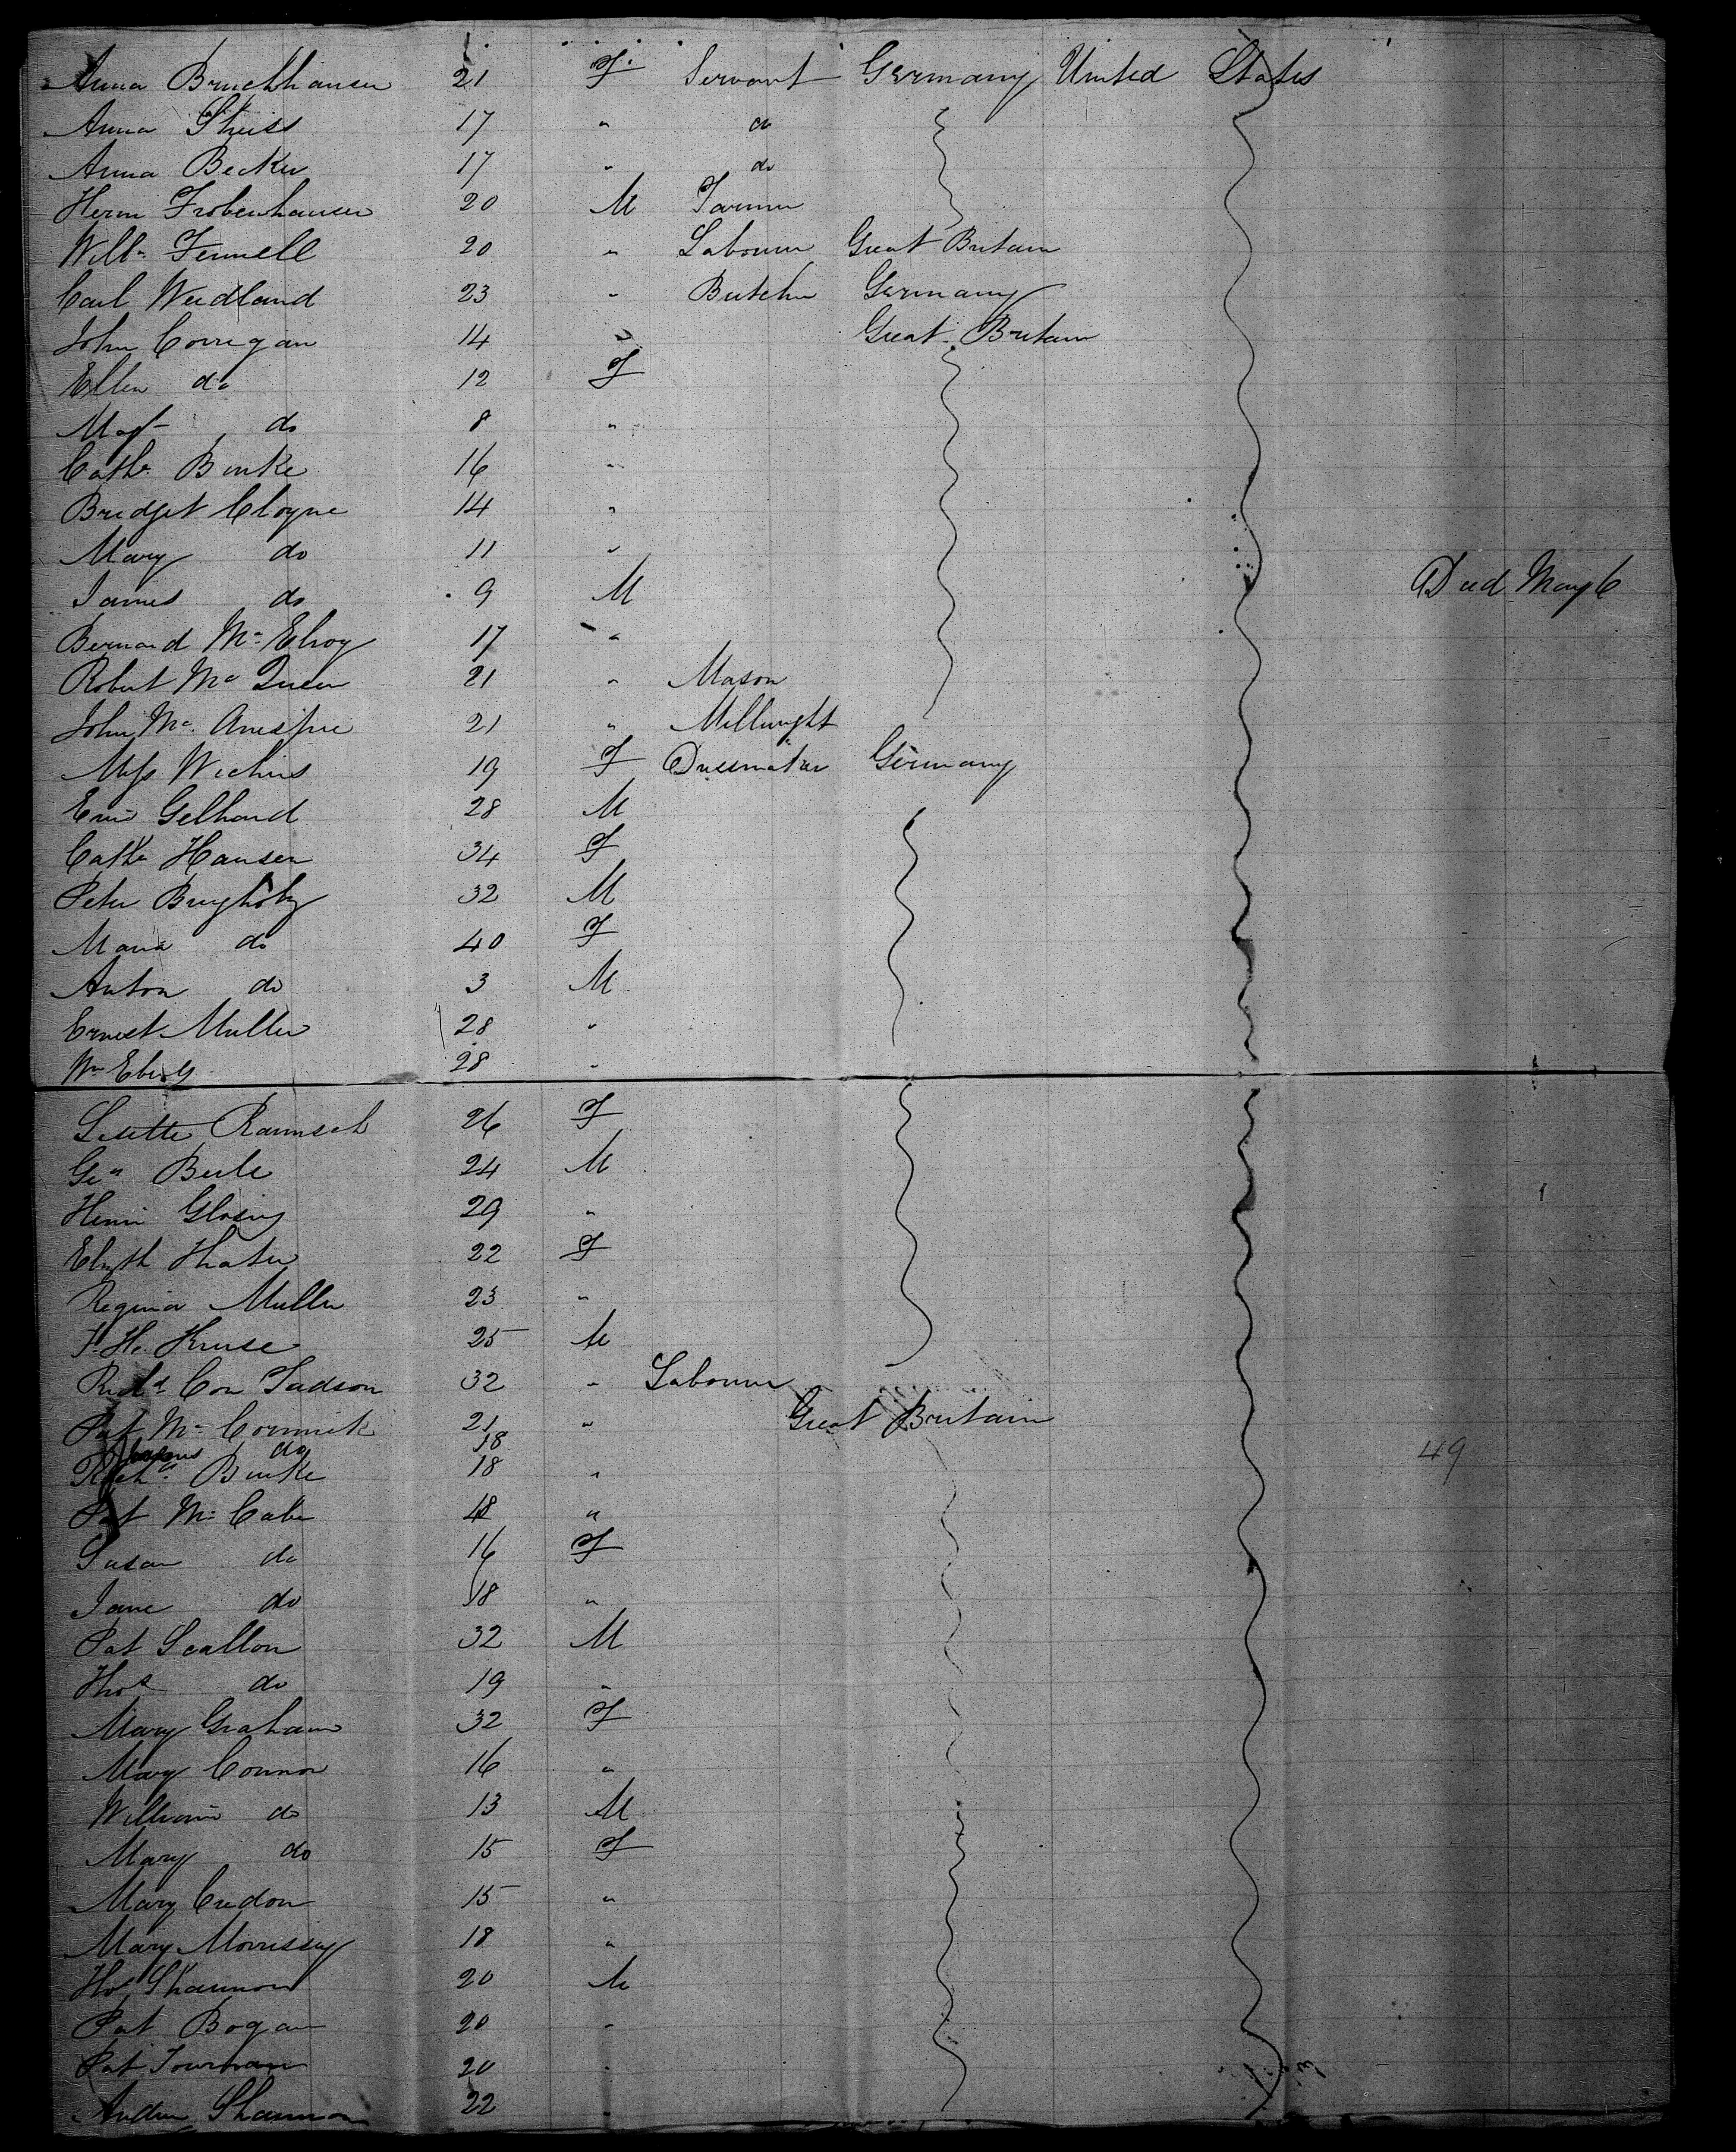 Anna Bruchhausen 21 F Servant Germany United States
Anna Theiss 17 " do
Anna Becker 17 " do
Herm Frobenhausen 20 M Farmer
Willm Fennell 20 " Labourer Great Britain
Carl Weidland 23 " Butcher Germany
John Corrigan 14 " Great Britain
Ellen do 12 F
Magt do 8 "
Cathe Burke 16 "
Bridget Cloyne 14 "
Mary do 11 "
James do 9 M Died May 6
Bernard Mc Elroy 17 "
Robert Mc Queen 21 " Mason
John Mc 21 " Millwright
Miss Wichers 19 F Dressmaker Germany
Gelhard 28 M
Cathe Hansen 34 F
Peter 32 M
Maria do 40 F
Anton do 3 M
Ernest Muller 28 "
Wm 28 "
Lisette 26 F
Geo 24 M
Henri 29 "
Elizth Thater 22 F
Regina Muller 23 "
F. H. Kruse 25 M
Richd Con Tadson 32 " Labourer
Pat Mc Cormick 21 " Great Britain
do 18
Burke 18 " 49
Pat Mc Cabe 18 "
Susan do 16 F
Jane do 18 "
Pat Scallon 32 M
Thos do 19 "
Mary Graham 32 F
Mary Connor 16 "
William do 13 M
Mary do 15 F
Mary Credon 15 "
Mary Morrissey 18 "
Shannon 20 M
Pat Bogan 20 "
Pat 20 "
Andrew Shannon 22 "